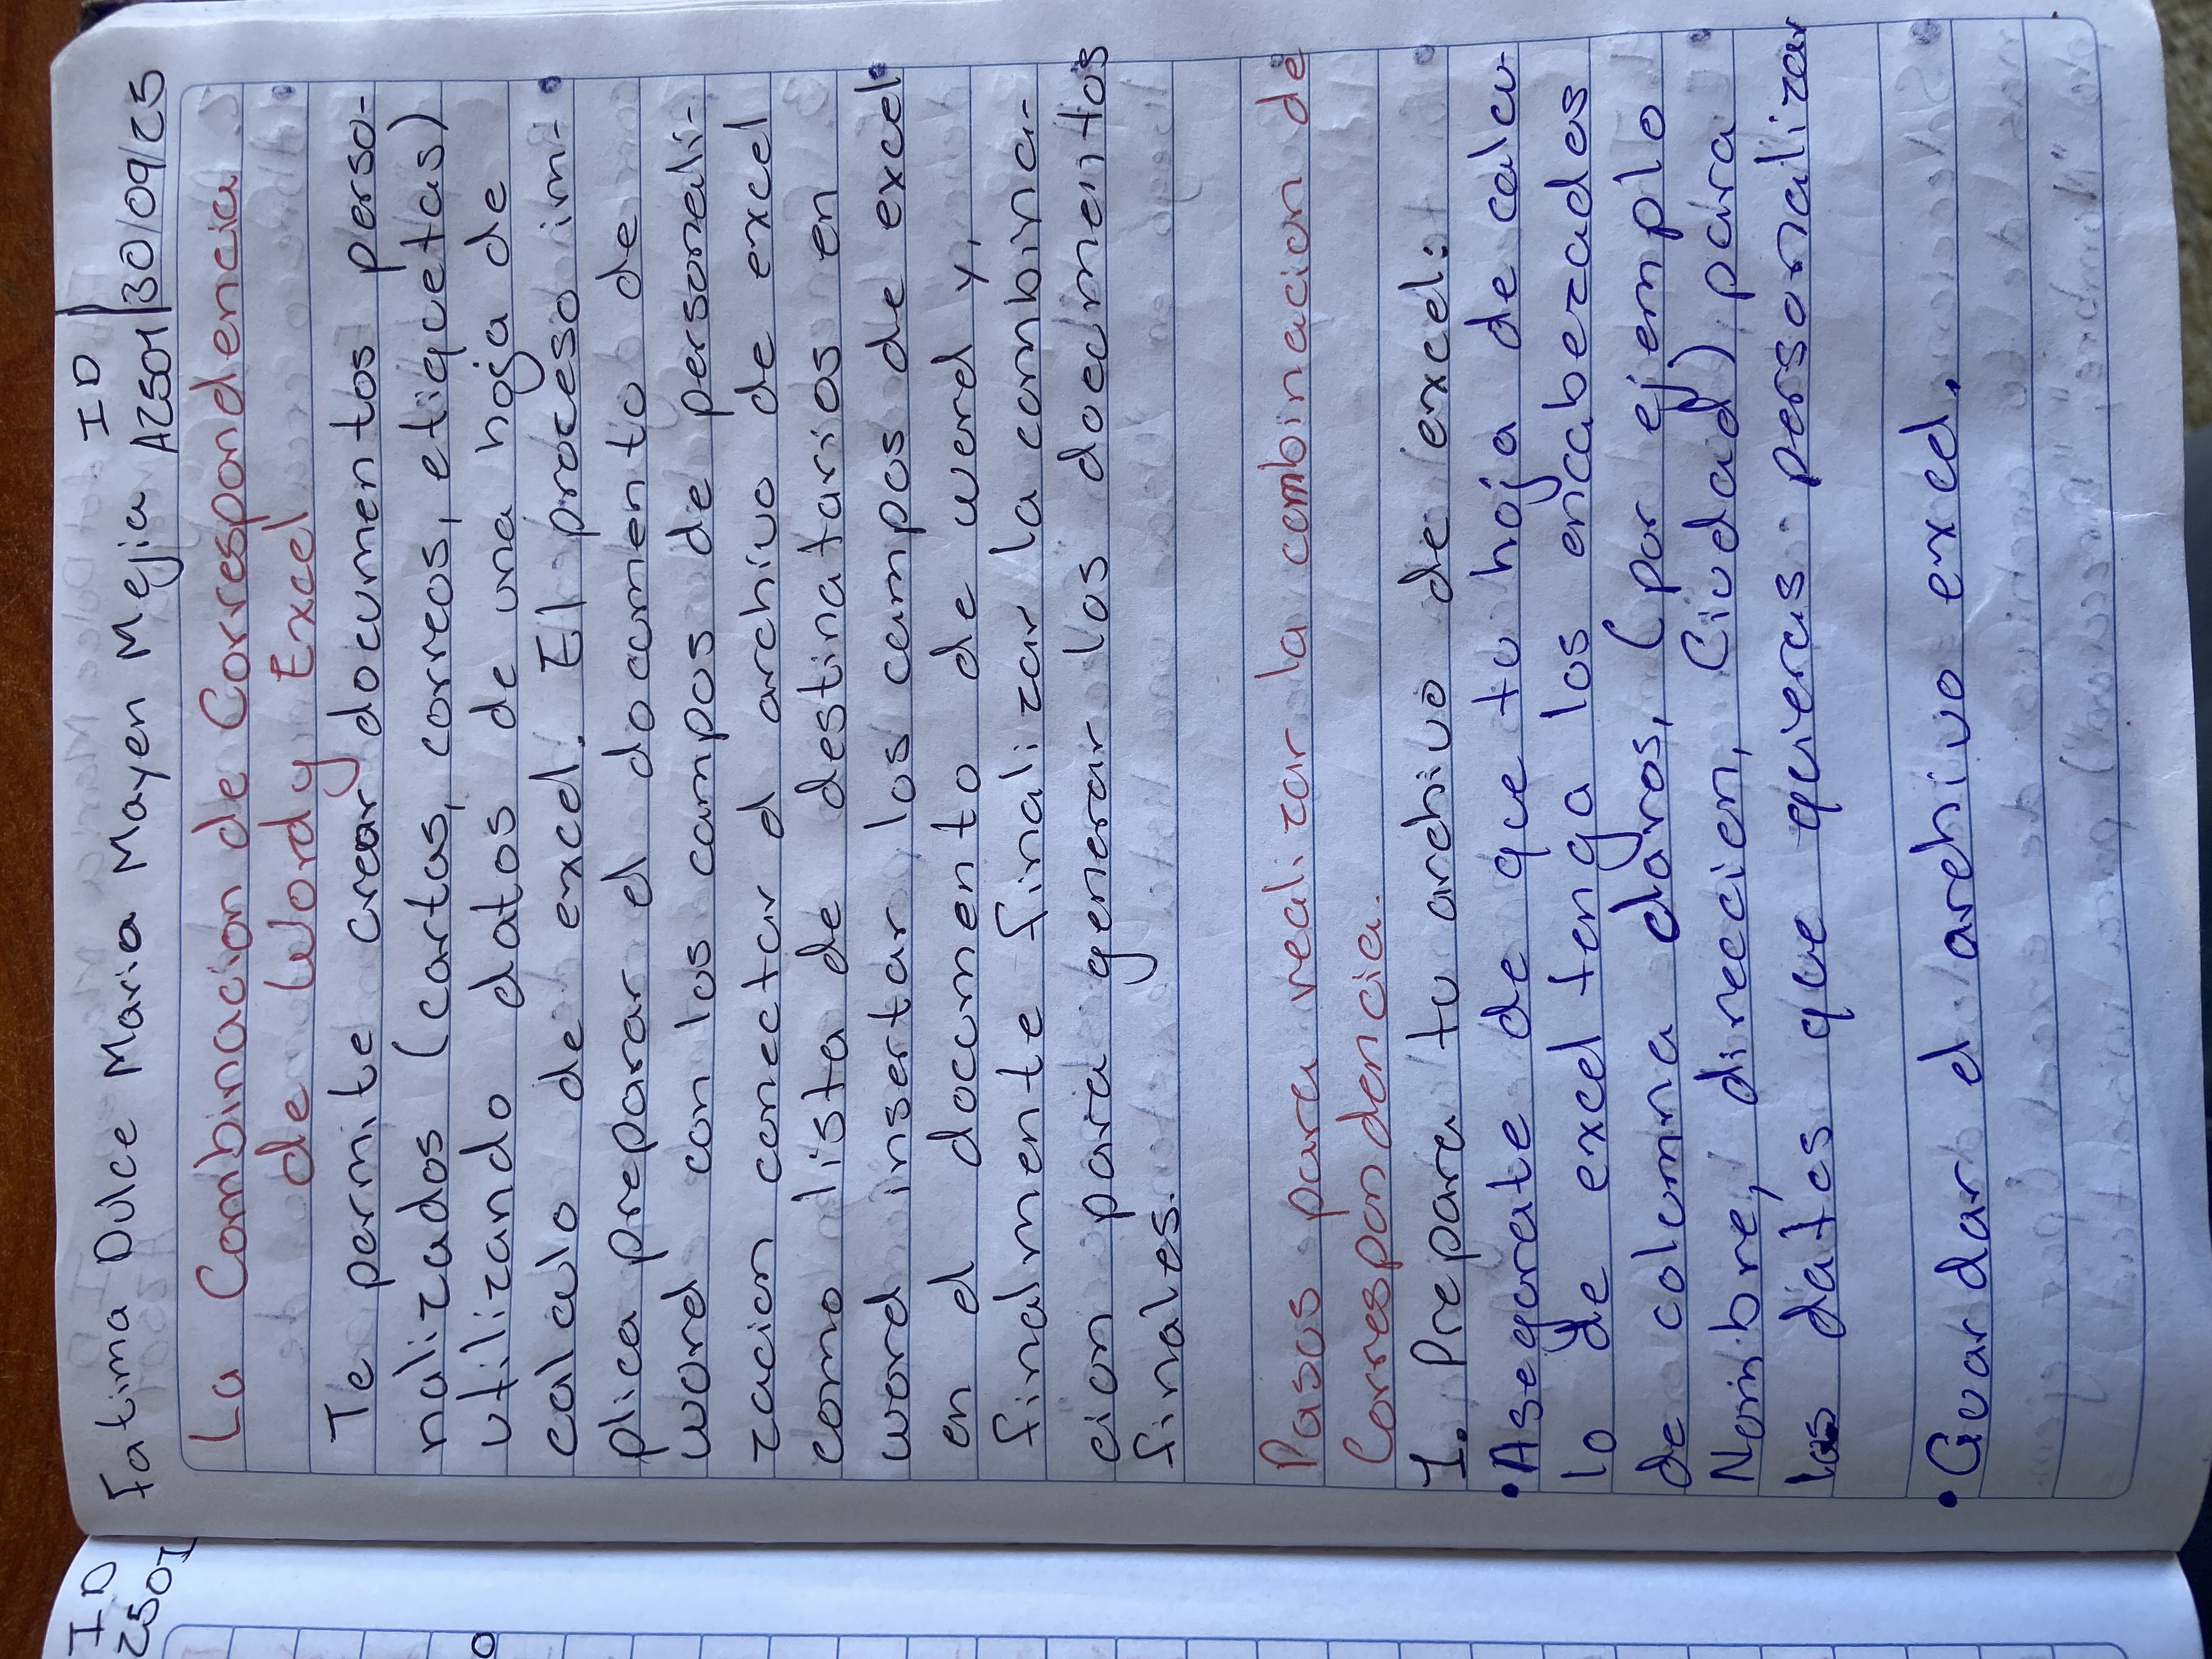 ID
Fatima Dulce Maria Mayen Mejia A2501 30/09/25
La Combinacion de Correspondencia
de Word y Excel
Te permite crear documentos perso-
nalizados (cartas, correos, etiquetas)
utilizando datos de una hoja de
calculo de excel. El proceso im-
plica preparar el documento de
word con los campos de personali-
zacion conectar el archivo de excel
como lista de destinatarios en
word insertar los campos de excel
en el documento de word y,
finalmente finalizar la combina-
cion para generar los documentos
finales.
Pasos para realizar la combinacion de
Correspondencia.
1. Prepara tu archivo de excel:
• Asegurate de que tu hoja de calcu-
lo de excel tenga los encabezados
de columna claros, (por ejemplo
Nombre, direccion, Ciudad) para
los datos que quieras personalizar
• Guardar el archivo excel.
ID
2501